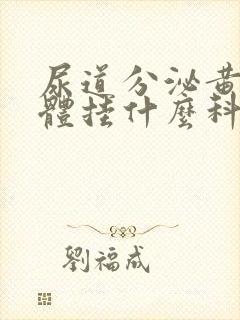 尿道分泌黃
體挂什麼科
劉福成